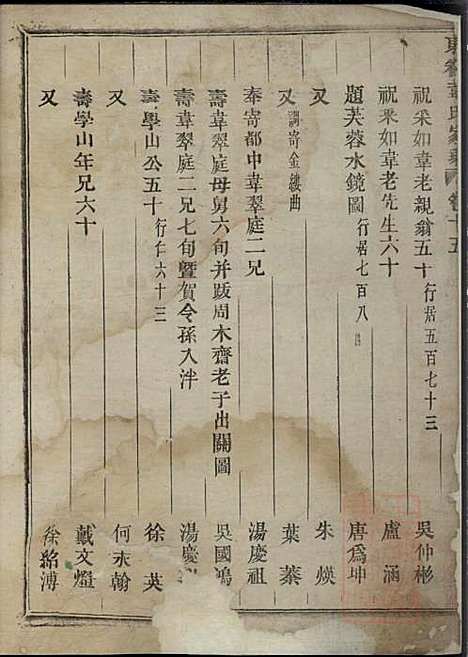 東眷韋氏家乘 卷十五
祝采如韋老親翁五十 行居五百七十三 吳仲彬
祝采如韋老先生六十 盧涵
題芙蓉水鏡圖 行居七百八 唐爲坤
又 朱煐
又 調寄金縷曲 葉蓁
奉寄都中韋翠庭二兄 湯慶祖
壽韋翠庭母舅六旬并跋周木齋老子出關圖 吳國鴻
壽韋翠庭二兄七旬曁賀令孫入泮 湯慶
壽學山公五十 行仁六十三 徐英
又 何永翰
壽學山年兄六十 戴文燈
又 徐紹溥